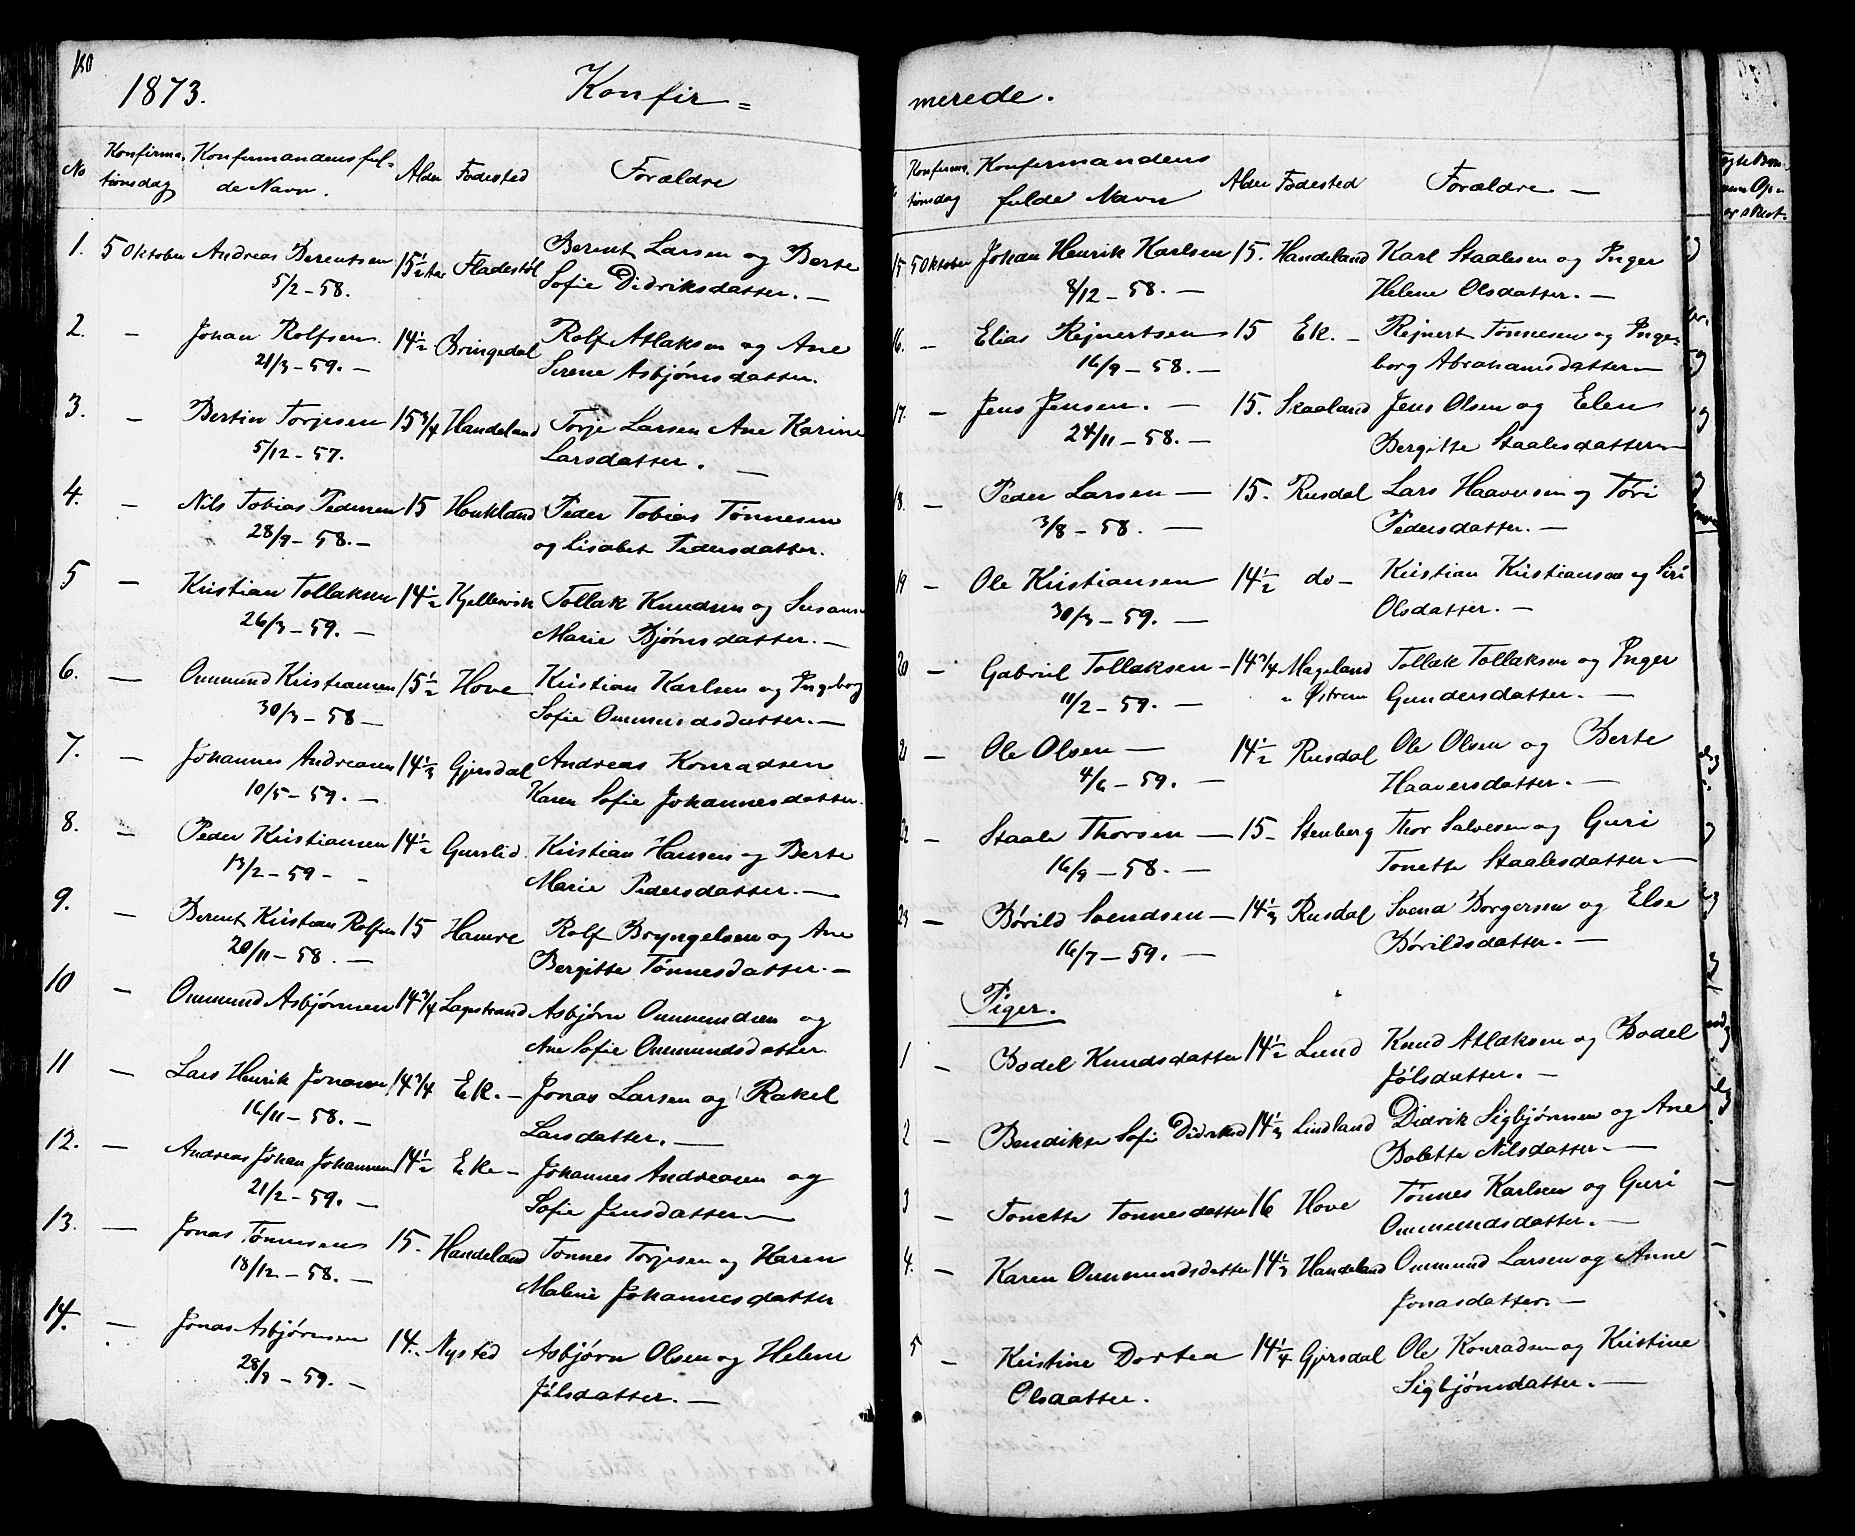 180
1873. Konfir=
No Konfirma- Konfermandens ful-
tionsdag de Navn. Alder Fødested Forældre
1. 5 Oktober Andreas Berentsen 15½ Fladestøl Berent Larsen og Berte
5/2-58. Sofie Didriksdatter. —
2. — Johan Rolfsen. 14½ Bringedal Rolf Atlaksen og Ane
21/3-59. — Serene Asbjørnsdatter.
3. — Bertin Torjesen 15 3/4 Handeland Torje Larsen Ane Karine
5/12-57. Larsdatter. —
4. — Nils Tobias Pedersen 15 Houkland Peder Tobias Tønnesen
28/9-58. — og Lisabet Pedersdatter.
5 — Kristian Tollaksen 14½ Kjellewik Tollak Knudsen og Susanne
26/3-59. — Marie Bjørnsdatter. —
6. — Ommund Kristiansen 15½ Hove Kristian Karlsen og Ingeborg
30/3-58 — Sofie Ommundsdatter. —
7. — Johannes Andreasen 14⅓ Gjersdal Andreas Konradsen
10/5-59. — Karen Sofie Johannesdatter.
8. — Peder Kristiansen 14½ Gurslid Kristian Hansen og Berte
13/2-59 - Marie Pedersdatter. —
9. — Berent Kristian Rolfsen 15 Hamre Rolf Bryngelsen og Ane
20/11-58. — Bergitte Tønnesdatter. —
10 — Ommund Asbjørnsen 14 3/4 Lagestrand Asbjørn Ommundsen og
Ane Sofie Ommundsdatter.
11 — Lars Henrik Jonasen 14 3/4 Ek. — Jonas Larsen og Rakel
16/11-58. — Larsdatter. —
12. — Andreas Johan Johannesen 14½ Eke — Johannes Andreasen og
21/2-59. — Sofie Jensdatter —
13. — Jonas Tønnesen 15. Handeland Tønnes Torjesen og Karen
18/12-58. — Malene Johannesdatter
14. — Jonas Asbjørnsen 14. Nysted Asbjørn Olsen og Helene
28/9-59. — Jølsdatter. —
merede.
Konfirma- Konfermandens
tionsdag fulde Navn Alder Fødested Forældre —
15 5 Oktober Johan Henrik Karlsen 15. Handeland Karl Staalesen og Inger
8/12-58. — Helene Olsdatter. —
16. — Elias Rejnertsen 15 Ek. — Rejnert Tønnesen og Inge-
16/9-58. — borg Abrahamsdatter —
17. — Jens Jensen. — 15. Skaaland Jens Olsen og Elen
24/11-58. — Bergitte Staalesdatter —
18. — Peder Larsen — 15. Rusdal Lars Haaversen og Tori
3/8-58. — Pedersdatter. —
19 — Ole Kristiansen 14½ do — Kristian Kristiansen og Siri
30/3-59. — Olsdatter. —
20 — Gabriel Tollaksen — 14 3/4 Mageland Tollak Tollaksen og Inger
11/2-59. — " Østrem Gundersdatter. —
21 — Ole Olsen — 14½ Rusdal Ole Olsen og Berte
4/6-59. — Haaversdatter. —
22 — Staale Thorsen — 15- Stenberg Thor Salvesen og Guri
16/9-58. — Tonette Staalesdatter. —
23 — Børild Svendsen — 14⅓ Rusdal Svend Borgersen og Else
16/7-59. — Børildsdatter. —
Piger.
1 — Bodel Knudsdatter 14½ Lund Knud Atlaksen og Bodel
Jølsdatter. —
2 — Bendikte Sofie Didriksd 14⅓ Lindland Didrik Sigbjørnsen og Ane
Bolette Nilsdatter. —
3 — Tonette Tønnesdatter 16 Hove Tønnes Karlsen og Guri
Ommundsdatter. —
4. — Karen Ommundsdatter 14⅓ Handeland Ommund Larsen og Anne
Jonasdatter. —
5 — Kristine Dortea 14¼ Gjersdal Ole Konradsen og Kristine
Olsdatter. Sigbjørnsdatter. —